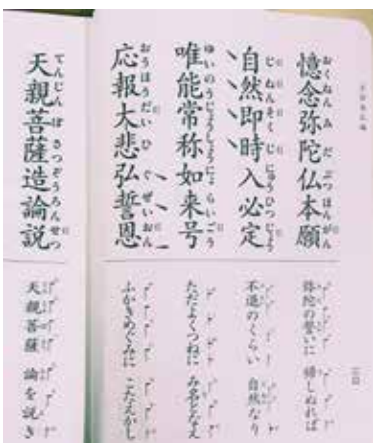 憶念弥陀仏本願
おくねんみだぶつほんがん
自然即時入必定
じねんそくじにゅうひつじょう
唯能常称如来号
ゆいのうじょうしょうにょらいごう
応報大悲弘誓恩
おうほうだいひぐぜいおん
天親菩薩造論説
てんじんぼさつぞうろんせつ
弥陀の誓いに 帰しぬれば
不退のくらい 自然なり
ただよくつねに み名となえ
ふかきめぐみに こたえかし
天親菩薩 論を説き